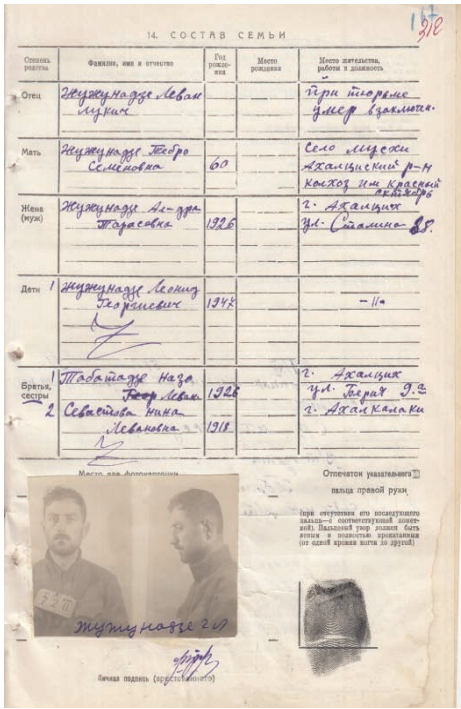 218
14. СОСТАВ СЕМЬИ
Степень родства
Фамилия, имя и отчество
Год рождения
Место рождения
Место жительства, работы и должность
Отец
Жужунадзе Леван
Лукич
При тюрьме
умер в заключен.
Мать
Жужунадзе Тебро
Семеновна
60
Село Мусхи
Ахалцихский р-н
Колхоз им Красный
октябрь
Жена
(муж)
Жужунадзе Ал-дра
Тарасовна
1926
г. Ахалцих
ул. Сталина 28.
Дети 1
Жужунадзе Леонид
Георгиевич
1947
-"-
Братья,
сестры
1 Табатадзе Назо
Леван
1926
г. Ахалцих
ул. Берия 9.а
2 Севастова Нина
Левановна
1918
г. Ахалкалаки
Место для фотокарточки
Отпечаток указательного
пальца правой руки
(при отсутствии его последующего
пальца—с соответствующей помет-
кой). Пальцевый узор должен быть
ясным и полностью прокатанным
(от одной кромки ногтя до другой)
Жужунадзе Г Л
Личная подпись (арестованного)